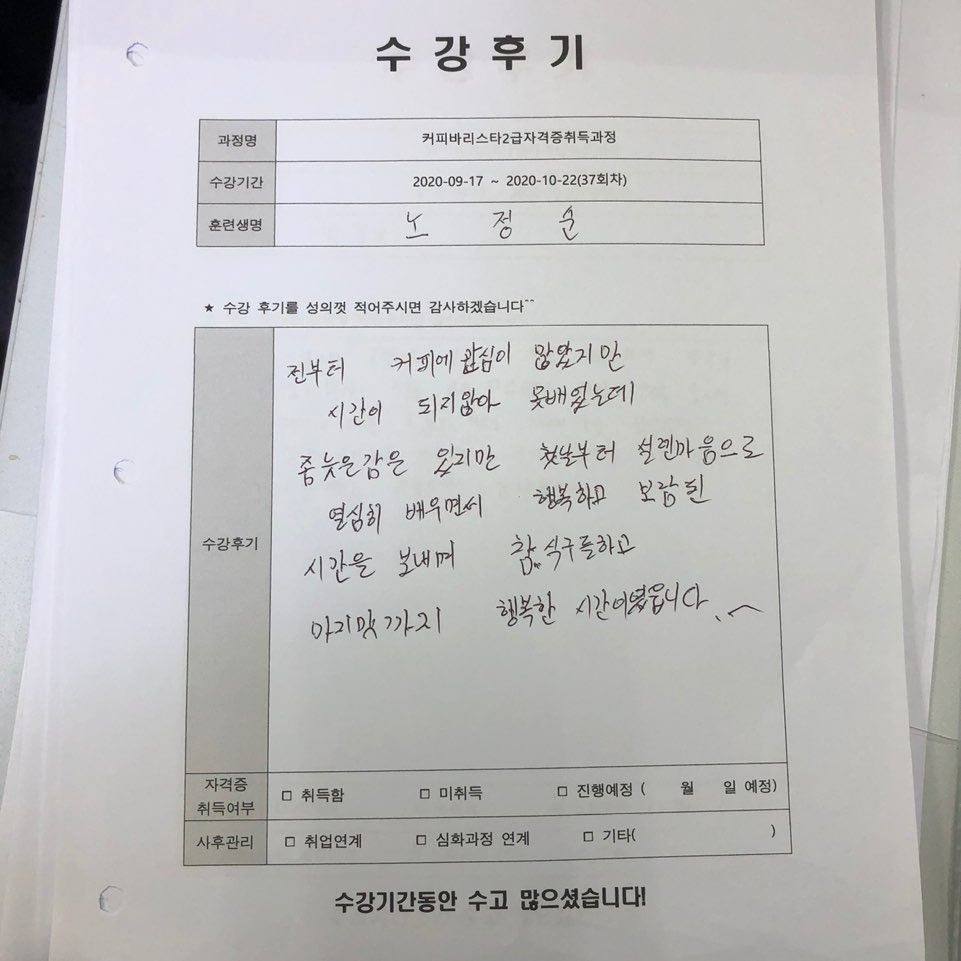 수 강 후 기
과정명 커피바리스타2급자격증취득과정
수강기간 2020-09-17 ~ 2020-10-22(37회차)
훈련생명 노 정 순
★ 수강 후기를 성의껏 적어주시면 감사하겠습니다^^
수강후기
전부터 커피에 관심이 많았지만
시간이 되지않아 못배웠는데
좀늦은감은 있지만 첫날부터 설렌마음으로
열심히 배우면서 행복하고 보람된
시간을 보내며 참
마지막까지 행복한 시간이였읍니다
자격증 취득여부 □ 취득함 □ 미취득 □ 진행예정 ( 월 일 예정)
사후관리 □ 취업연계 □ 심화과정 연계 □ 기타( )
수강기간동안 수고 많으셨습니다!